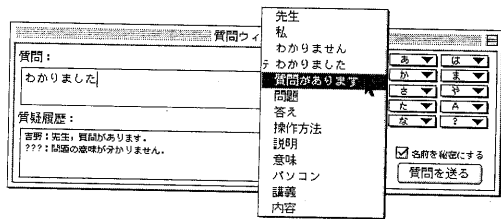 質問ウィ
質問：
わかりました
質疑履歴：
吉野：先生，質問があります。
???：問題の意味が分かりません。
先生
私
わかりません
テ わかりました
質問があります
問題
答え
操作方法
説明
意味
パソコン
講義
内容
あ
は
か
ま
さ
や
た
A
な
?
名前を秘密にする
質問を送る